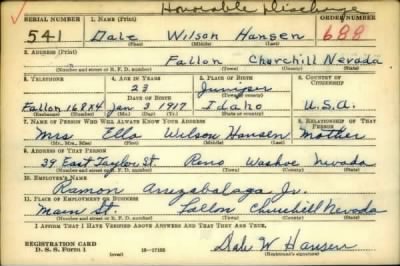 Honorable Discharge
SERIAL NUMBER 1. NAME (Print) ORDER NUMBER
541 Dale Wilson Hansen 688
(First) (Middle) (Last)
2. ADDRESS (Print)
Fallon Churchill Nevada
(Number and street or R. F. D. number) (Town) (County) (State)
3. TELEPHONE 4. AGE IN YEARS 5. PLACE OF BIRTH 6. COUNTRY OF CITIZENSHIP
23 Juniper
DATE OF BIRTH (Town or county)
Fallon 168X4 Jan 3 1917 Idaho U.S.A.
(Exchange) (Number) (Mo.) (Day) (Yr.) (State or country)
7. NAME OF PERSON WHO WILL ALWAYS KNOW YOUR ADDRESS 8. RELATIONSHIP OF THAT PERSON
Mrs Ella Wilson Hansen Mother
(Mr., Mrs., Miss) (First) (Middle) (Last)
9. ADDRESS OF THAT PERSON
39 East Taylor St Reno Washoe Nevada
(Number and street or R. F. D. number) (Town) (County) (State)
10. EMPLOYER'S NAME
Ramon Jr.
11. PLACE OF EMPLOYMENT OR BUSINESS
Main St. Fallon Churchill Nevada
(Number and street or R. F. D. number) (Town) (County) (State)
I AFFIRM THAT I HAVE VERIFIED ABOVE ANSWERS AND THAT THEY ARE TRUE.
REGISTRATION CARD
D. S. S. Form 1 (over) 16—17105 Dale W. Hansen
(Registrant's signature)